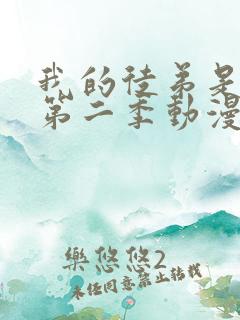 我的徒弟是
第二季動漫
樂悠悠2
未經同意禁止轉載